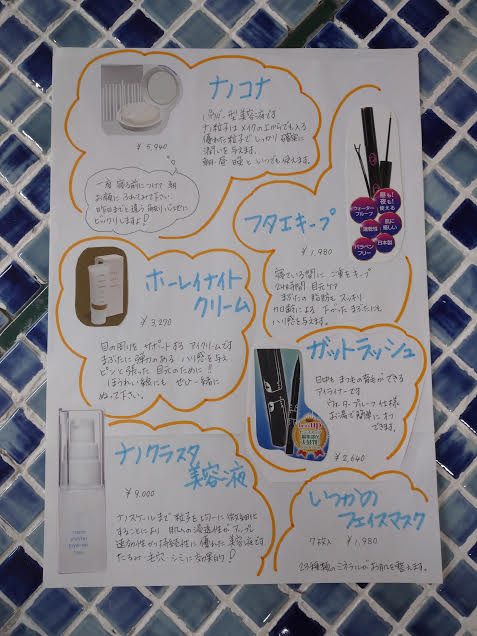 ナノコナ
パウダー型美容液です
ナノ粒子は メイクの上からでも入る
優れた粒子で しっかり 確実に
潤いを与えます。
朝・昼・晩と いつでも使えます。
¥5,940
一度 寝る前につけて 朝
お顔に ふれてみて下さい
昨日までと違う 手触りバツグンに
ビックリしますよ!
フタエキープ
¥1,980
昼も!
夜も!
使える
ウォーター
プルーフ
速乾性
肌に
優しい
パラベン
フリー
日本製
寝ている間に 二重をキープ
24時間 目元ケア
まぶたの 脂肪も スッキリ
加齢による 下がったまぶたにも
ハリ感を与えます。
ホーレイナイト
クリーム
¥3,270
目の周りを サポートする アイクリームです
まぶたに 弾力のある ハリ感を与え
ピンと張った 目元のために!!
ほうれい線にも ぜひ一緒に
ぬって下さい。
ガットラッシュ
日中も まつ毛の育毛ができる
アイライナーです
ウォータープルーフ仕様
お湯で簡単に オフ
できます。
¥2,640
ナノクラスタ
美容液
¥9,000
ナノスケールまで 粒子をパワーに 微細化
することにより 肌への浸透性がアップ
速効性かつ持続性に 優れた 美容液です
たるみ・毛穴・シミに効果的!
いつかの
フェイスマスク
7枚入 ¥1,980
23種類の ミネラルが お肌を整えます。